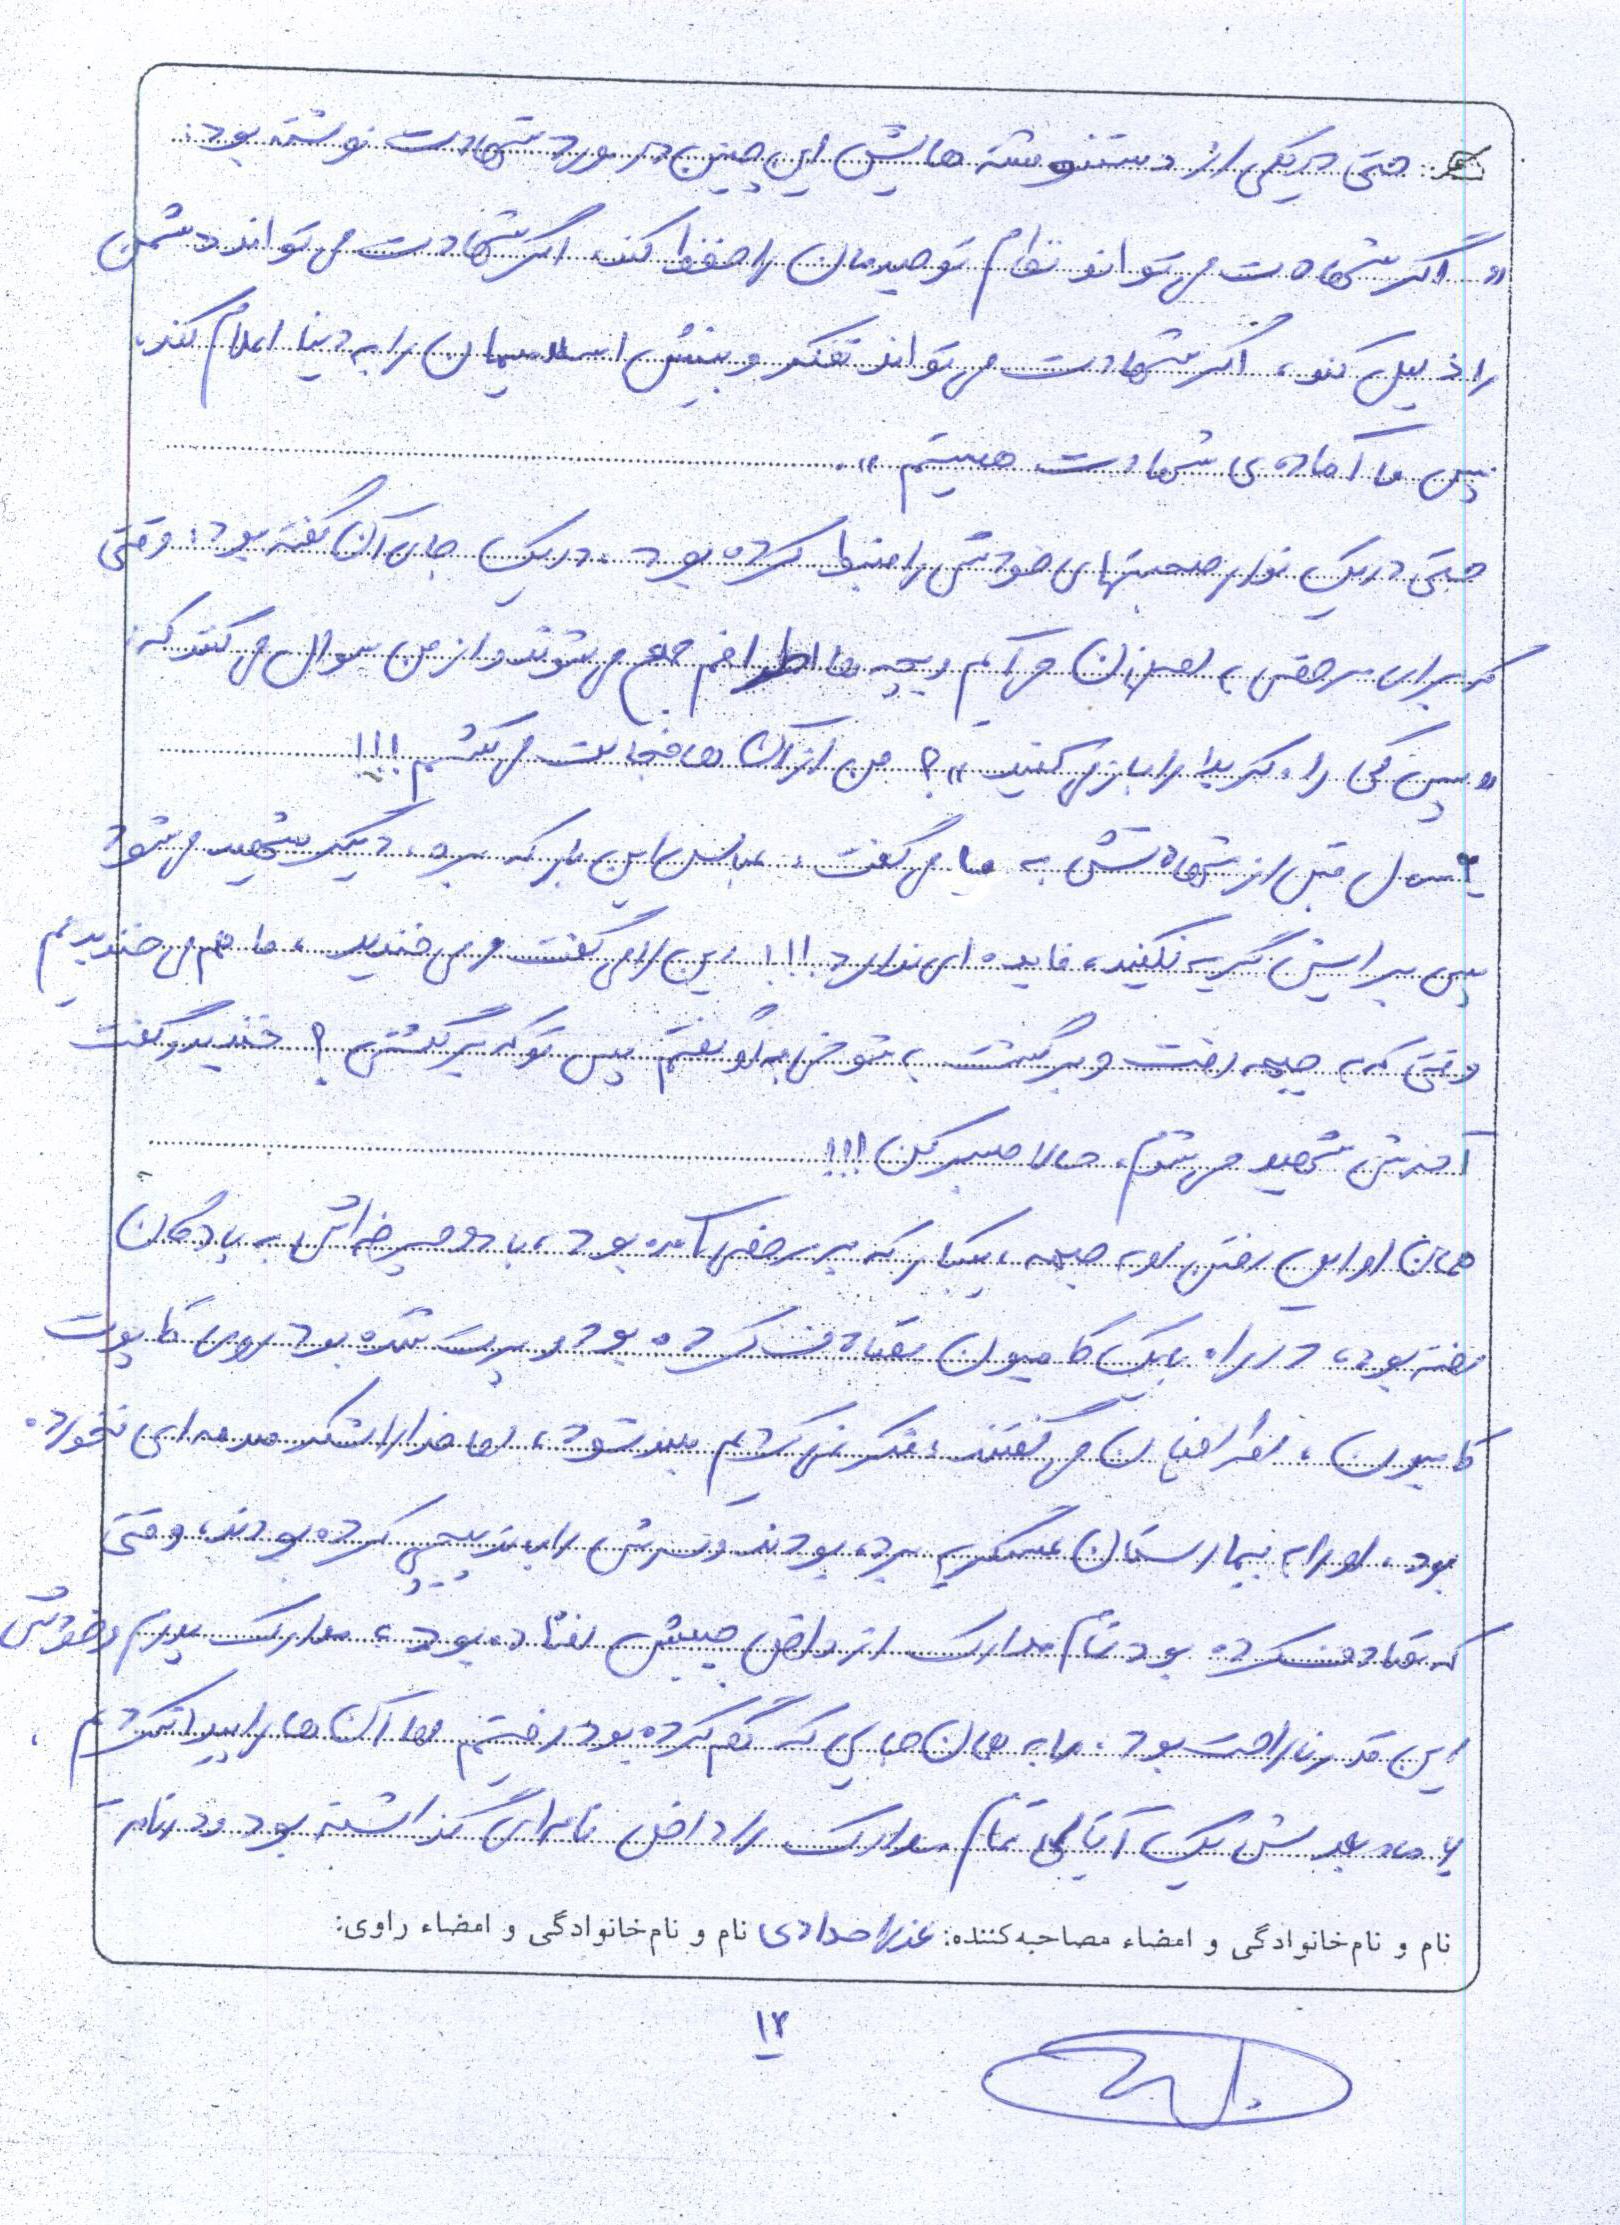 حتی در یکی از دستنوشته هایش این چنین در مورد شهادت نوشته بود:
« اگر شهادت می تواند نظام توحیدمان را حفظ کند، اگر شهادت می تواند دشمن
را ذلیل کند، اگر شهادت می تواند تفکر و بینش اسلامیمان را به دنیا اعلام کند،
پس ما آماده ی شهادت هستیم ».
حتی در یک نوار صحبتهای خودش را ضبط کرده بود. در یک جای آن گفته بود: وقتی
که برای مرخصی به تهران می آیم و بچه ها اطرافم جمع می شوند و از من سوال می کنند که:
« پس کی راه کربلا را باز می کنید »؟ من از آن ها خجالت می کشم!!!
۲ سال قبل از شهادتش به ما می گفت: عباس این بار که بره، دیگر شهید می شود
پس برایش گریه نکنید، فایده ای ندارد!!! این را می گفت و می خندید، ما هم می خندیدیم
وقتی که به جبهه رفت و برگشت به شوخی به او گفتم پس تو که برگشتی؟ خندید و گفت
آخرش شهید می شوم، حالا صبر کن!!!
همان اوایل رفتن او به جبهه، یکبار که به مرخصی آمده بود، با دوچرخه اش به پادگان
رفته بود، در راه با یک کامیون تصادف کرده بود و پرت شده بود روی کاپوت
کامیون، اطرافیان می گفتند: فکر نمی کردیم بلند شود، اما خدا را شکر صدمه ای نخورده
بود، او را به بیمارستان عسگریه برده بودند و سرش را باند پیچی کرده بودند، وقتی
که تصادف کرده بود تمام مدارک از داخل جیبش افتاده بود، مدارک پدرم و خودش
این قدر ناراحت بود. ما به همان جایی که گم کرده بود رفتیم اما آن ها را پیدا نکردیم،
۲ ماه بعدش یک آقایی تمام مدارک را داخل نامه ای گذاشته بود و در نامه
نام و نام‌خانوادگی و امضاء مصاحبه‌کننده: عذرا حدادی نام و نام‌خانوادگی و امضاء راوی:
۱۲